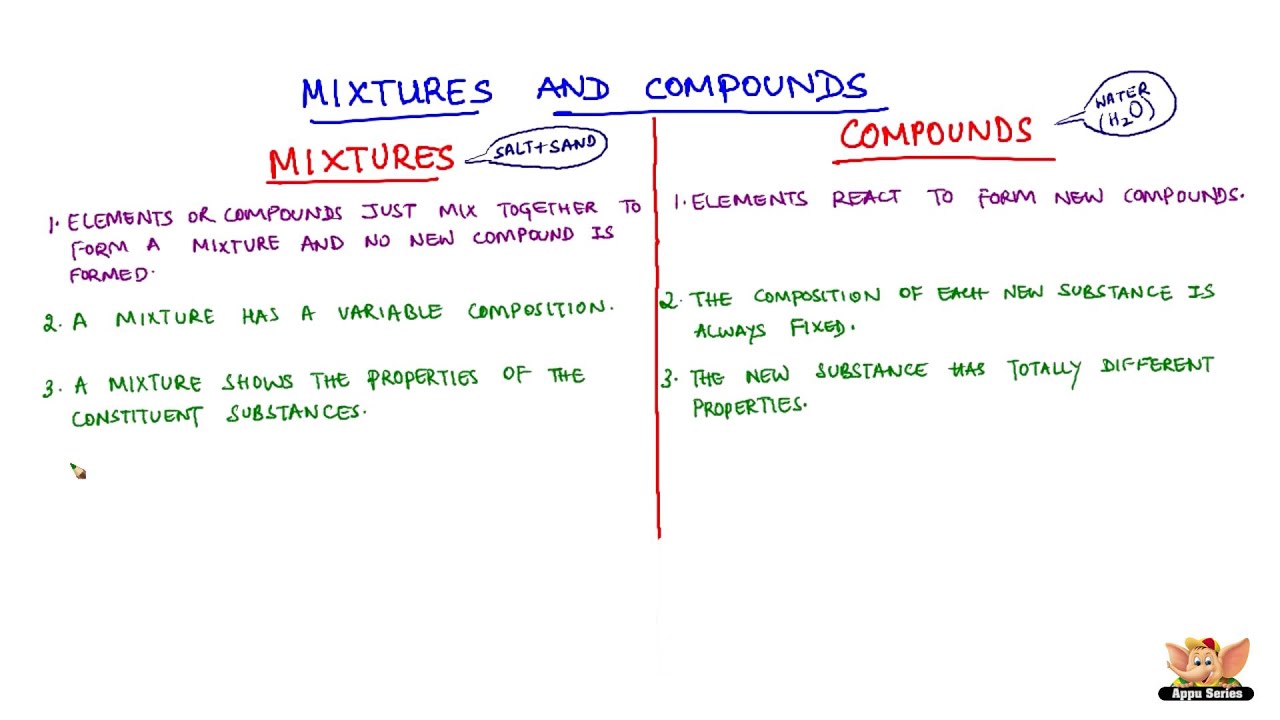 MIXTURES AND COMPOUNDS
MIXTURES
SALT+SAND
1. ELEMENTS OR COMPOUNDS JUST MIX TOGETHER TO
FORM A MIXTURE AND NO NEW COMPOUND IS
FORMED.
2. A MIXTURE HAS A VARIABLE COMPOSITION.
3. A MIXTURE SHOWS THE PROPERTIES OF THE
CONSTITUENT SUBSTANCES.
COMPOUNDS
WATER
(H₂O)
1. ELEMENTS REACT TO FORM NEW COMPOUNDS.
2. THE COMPOSITION OF EACH NEW SUBSTANCE IS
ALWAYS FIXED.
3. THE NEW SUBSTANCE HAS TOTALLY DIFFERENT
PROPERTIES.
Appu Series